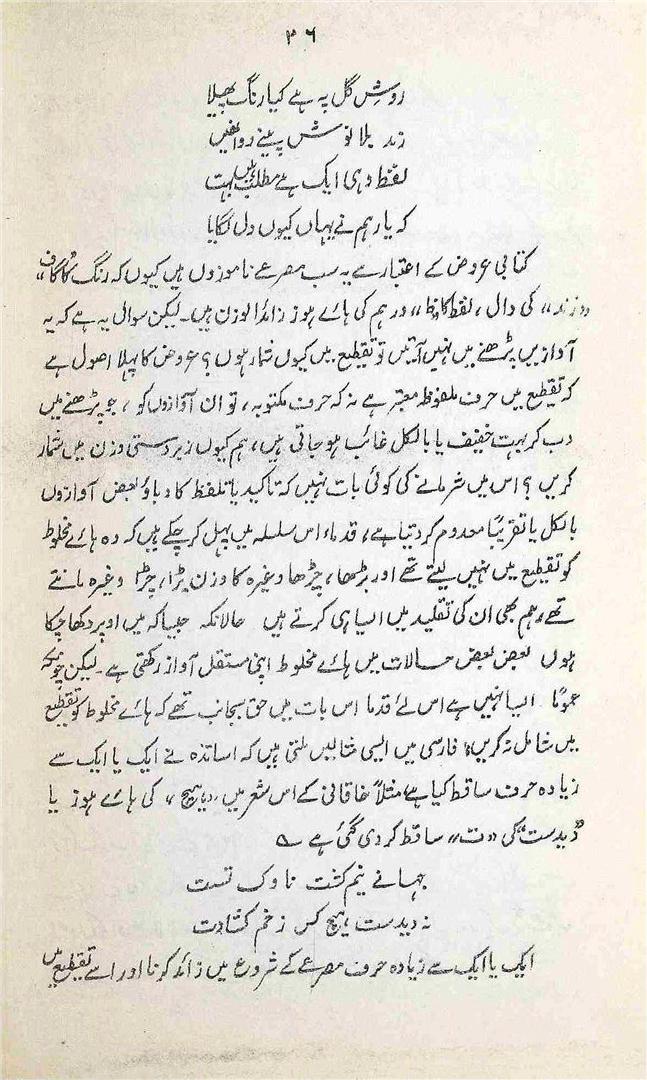 ۳۶
روشِ گل پہ ہے کیا رنگ پھیلا
زند بلا نوش پینے روا تھیں
لفظ وہی ایک ہے مطلب ہیں بہت
کہ یار ہم نے یہاں کیوں دل لگایا
کتابی عروض کے اعتبار سے یہ سب مصرعے ناموزوں ہیں کیوں کہ رنگ کا گاف
"زند" کی دال، لفظ کا "ظ" اور ہم کی ہائے ہوز زائد الوزن ہیں۔ لیکن سوال یہ ہے کہ یہ
آوازیں پڑھنے میں نہیں آتیں تو تقطیع میں کیوں شمار ہوں؟ عروض کا پہلا اصول ہے
کہ تقطیع میں حرف ملفوظہ معتبر ہے نہ کہ حرف مکتوبہ، تو ان آوازوں کو، جو پڑھنے میں
دب کر بہت خفیف یا بالکل غائب ہو جاتی ہیں، ہم کیوں زبردستی وزن میں شمار
کریں؟ اس میں شرمانے کی کوئی بات نہیں کہ تاکید یا تلفظ کا دباؤ بعض آوازوں
بالکل یا تقریباً معدوم کر دیتا ہے، قدماء اس سلسلہ میں پہل کر چکے ہیں کہ وہ ہائے مخلوط
کو تقطیع میں نہیں لیتے تھے اور بڑھا، چڑھا وغیرہ کا وزن بڑا، چڑا وغیرہ مانتے
تھے، ہم بھی ان کی تقلید میں ایسا ہی کرتے ہیں حالانکہ جیسا کہ میں اوپر دکھا چکا
ہوں بعض بعض حالات میں ہائے مخلوط اپنی مستقل آواز رکھتی ہے۔ لیکن چونکہ
عموماً ایسا نہیں ہے اس لئے قدما اس بات میں حق بجانب تھے کہ ہائے مخلوط کو تقطیع
میں شامل نہ کریں۔ فارسی میں ایسی مثالیں ملتی ہیں کہ اساتذہ نے ایک یا ایک سے
زیادہ حرف ساقط کیا ہے، مثلاً خاقانی کے اس شعر میں، دہا ہیچ، کی ہائے ہوز یا
"دیدست" کی "ت" ساقط کر دی گئی ہے ؎
بہانے نیم کشت ناوک تست
نہ دیدست ہیچ کس زخم کشادت
ایک یا ایک سے زیادہ حرف مصرعے کے شروع میں زائد کرنا اور اسے تقطیع میں